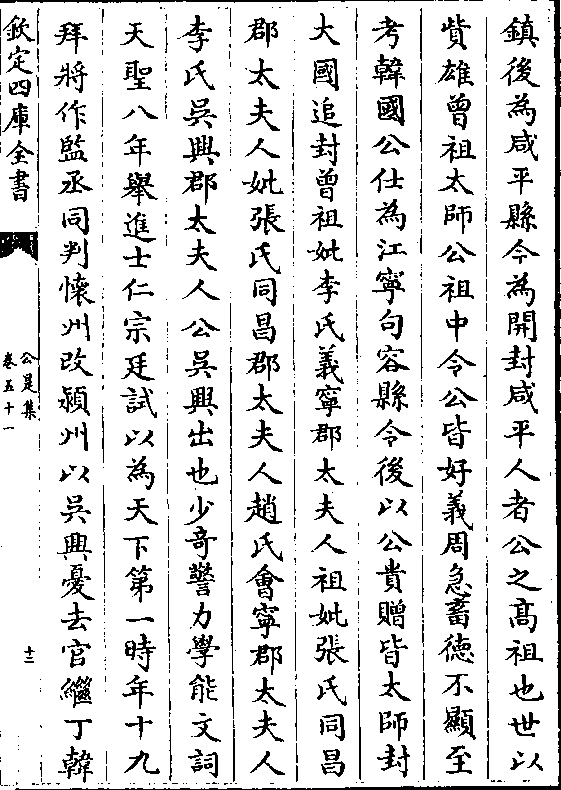 鎮後為咸平縣令為開封咸平人者公之髙祖也世以
貲雄曾祖太師公祖中令公皆好義周急蓄徳不顯至
考韓國公仕為江寧句容縣令後以公貴贈皆太師封
大國追封曾祖妣李氏義寧郡太夫人祖妣張氏同昌
郡太夫人妣張氏同昌郡太夫人趙氏會寧郡太夫人
李氏吳興郡太夫人公吳興出也少竒警力學能文詞
天聖八年舉進士仁宗廷試以為天下第一時年十九
拜將作監丞同判懐州改潁州以吳興憂去官繼丁韓
欽定四庫全書
公是集
卷五十一
十三